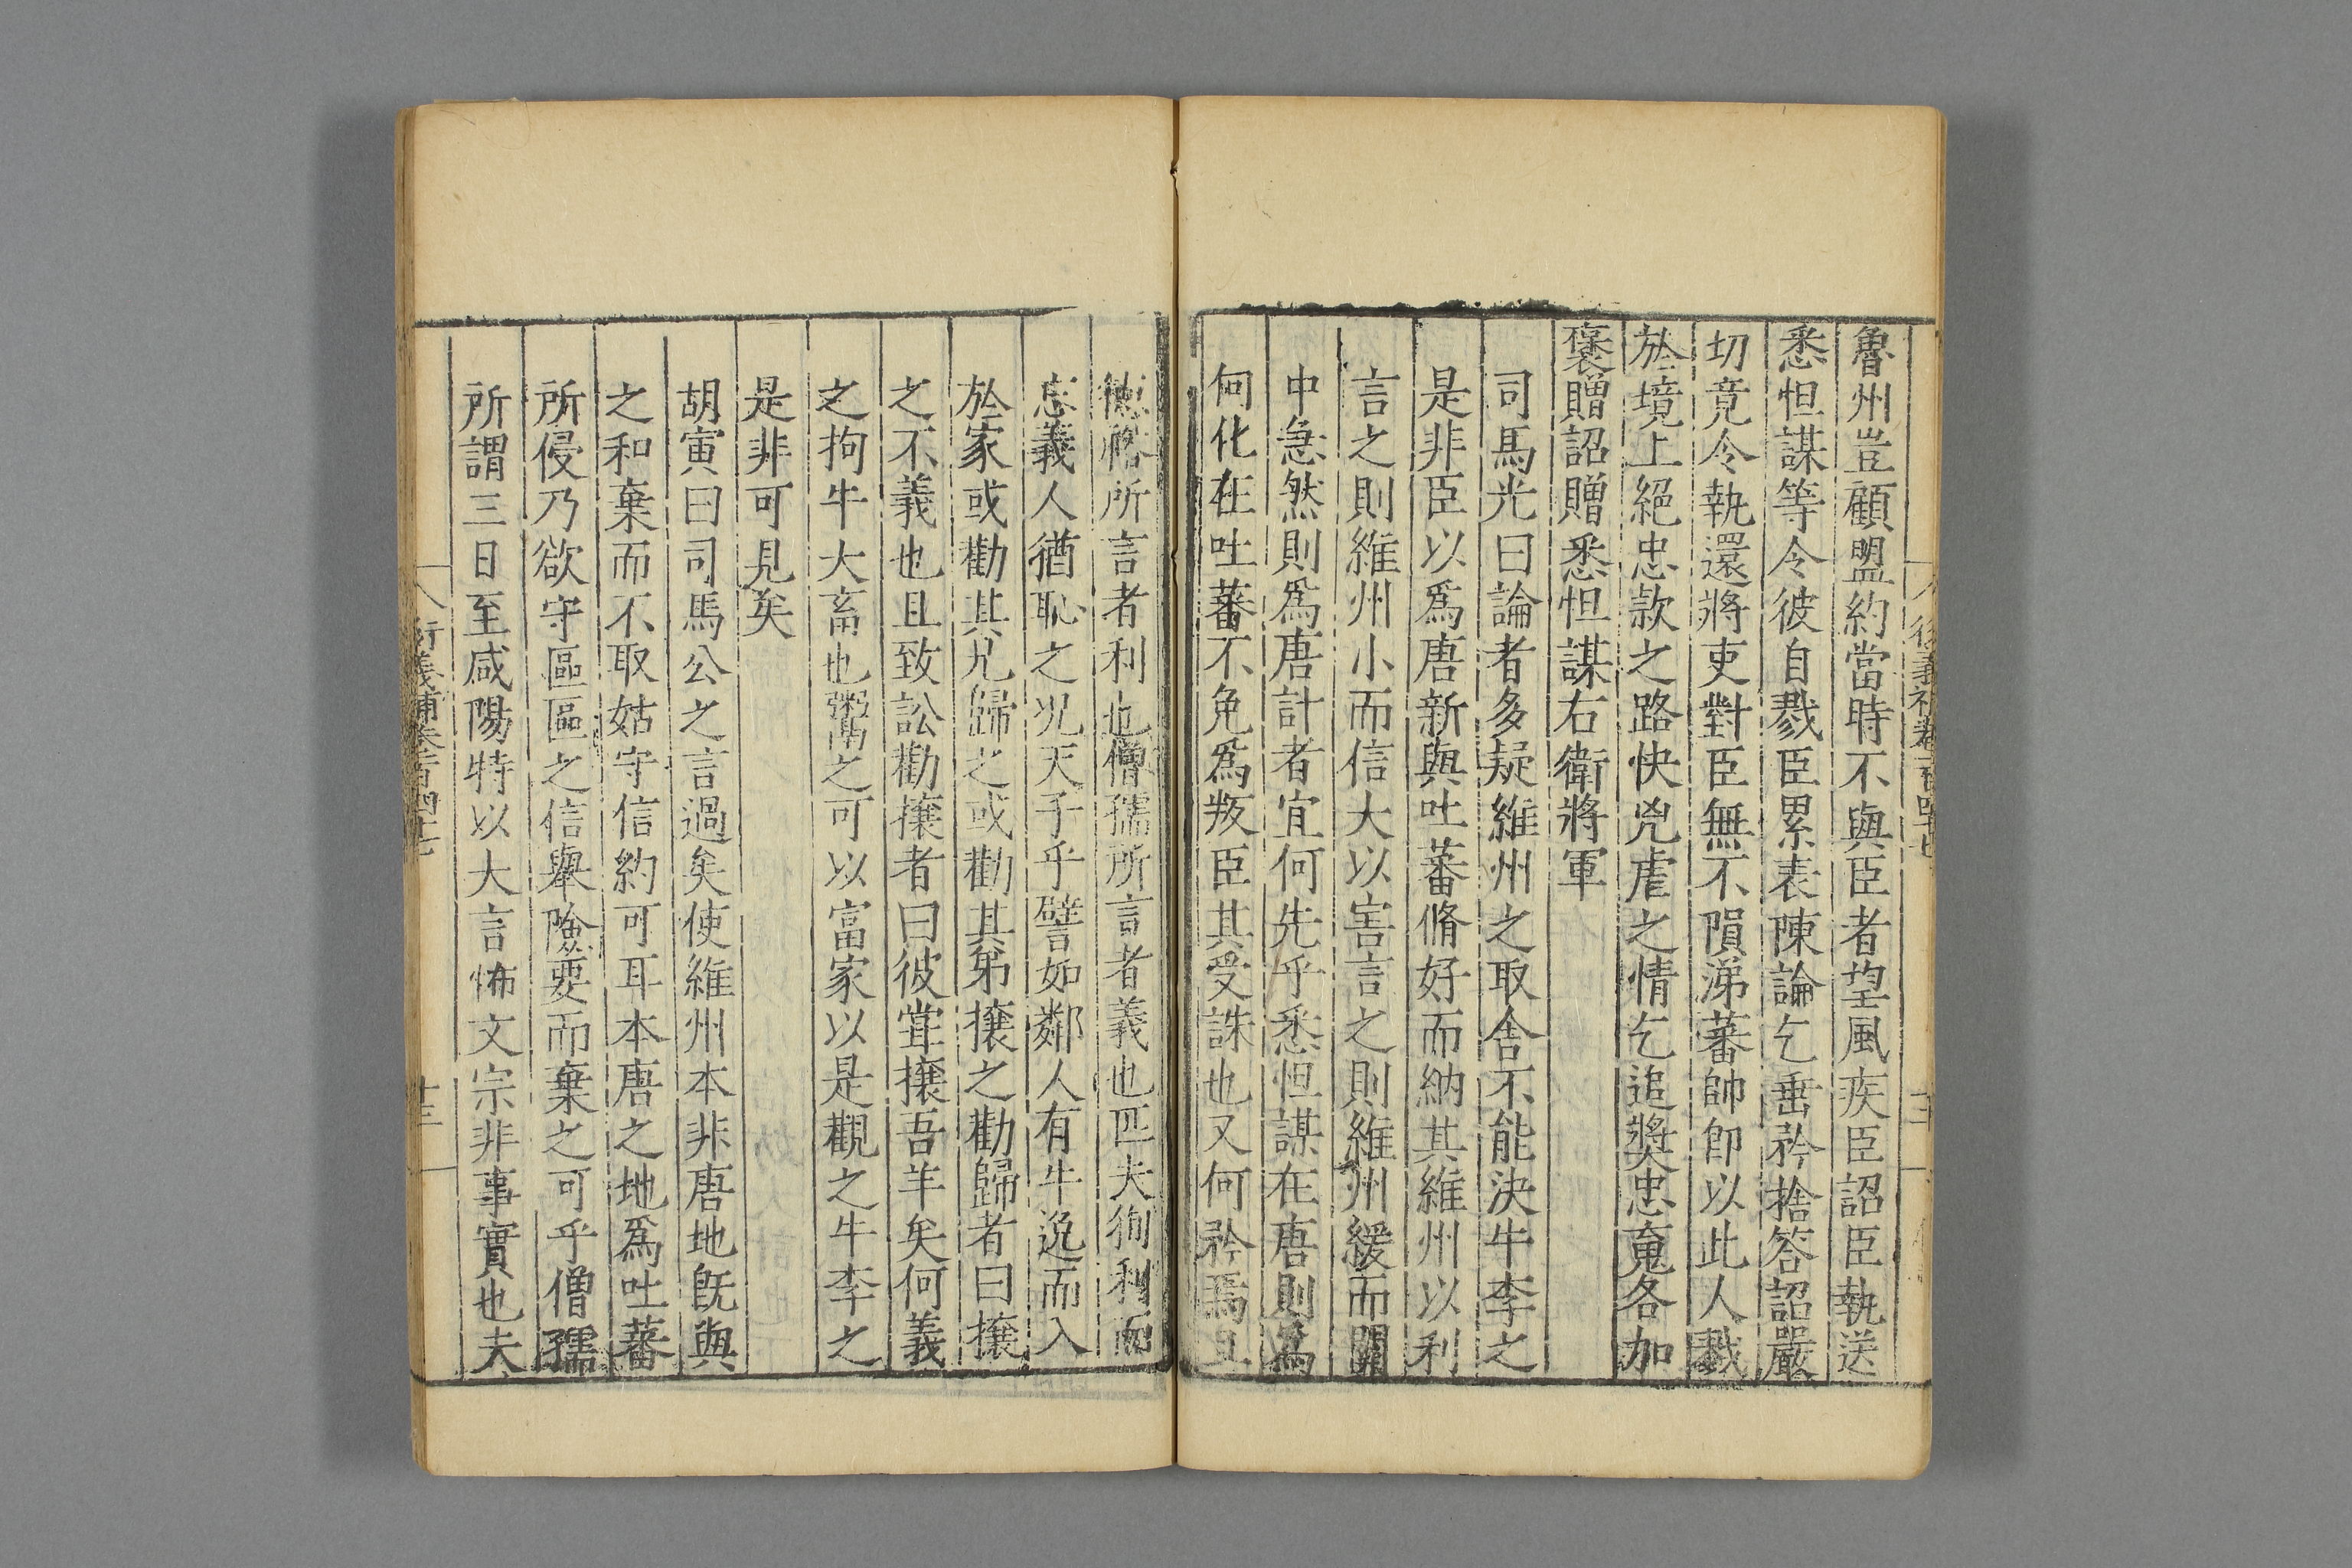 魯州豈顧盟約當時不與臣者望風疾臣詔臣執送
悉怛謀等令彼自戮臣累表陳論乞垂矜捨答詔嚴
切竟令執還將吏對臣無不隕涕蕃帥即以此人戮
於境上絕忠款之路快兇虐之情乞追奬忠䰟各加
褒贈詔贈悉怛謀右衛將軍
司馬光曰論者多疑維州之取舍不能決牛李之
是非臣以爲唐新與吐蕃脩好而納其維州以利
言之則維州小而信大以害言之則維州緩而關
中急然則爲唐計者宜何先乎悉怛謀在唐則爲
何化在吐蕃不免爲叛臣其受誅也又何矜焉且
德裕所言者利也僧孺所言者義也匹夫徇利而
忘義人猶恥之况天子乎譬如鄰人有牛逸而入
於家或勸其兄歸之或勸其弟攘之勸歸者曰攘
之不義也且致訟勸攘者曰彼嘗攘吾羊矣何義
之拘牛大畜也鬻之可以富家以是觀之牛李之
是非可見矣
胡寅曰司馬公之言過矣使維州本非唐地旣與
之和棄而不取姑守信約可耳本唐之地爲吐蕃
所侵乃欲守區區之信舉險要而棄之可乎僧孺
所謂三日至咸陽特以大言怖文宗非事實也夫
衍義補卷一百四十七
十三